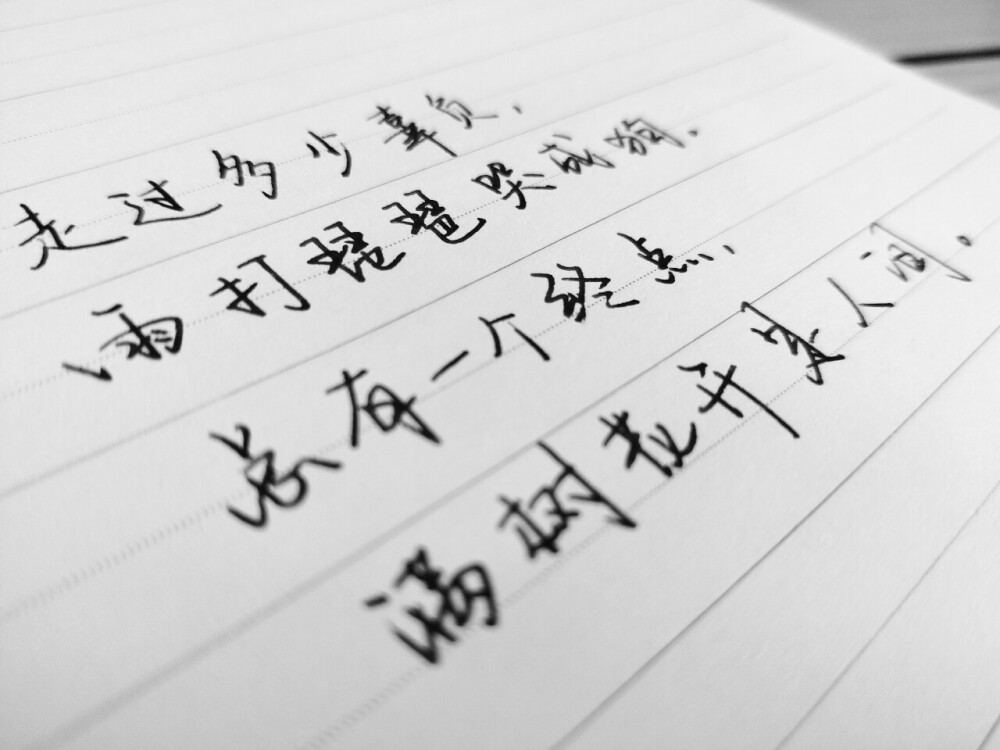 走过多少辜负，
雨打琵琶哭成狗。
总有一个终点，
满树花开是人间。